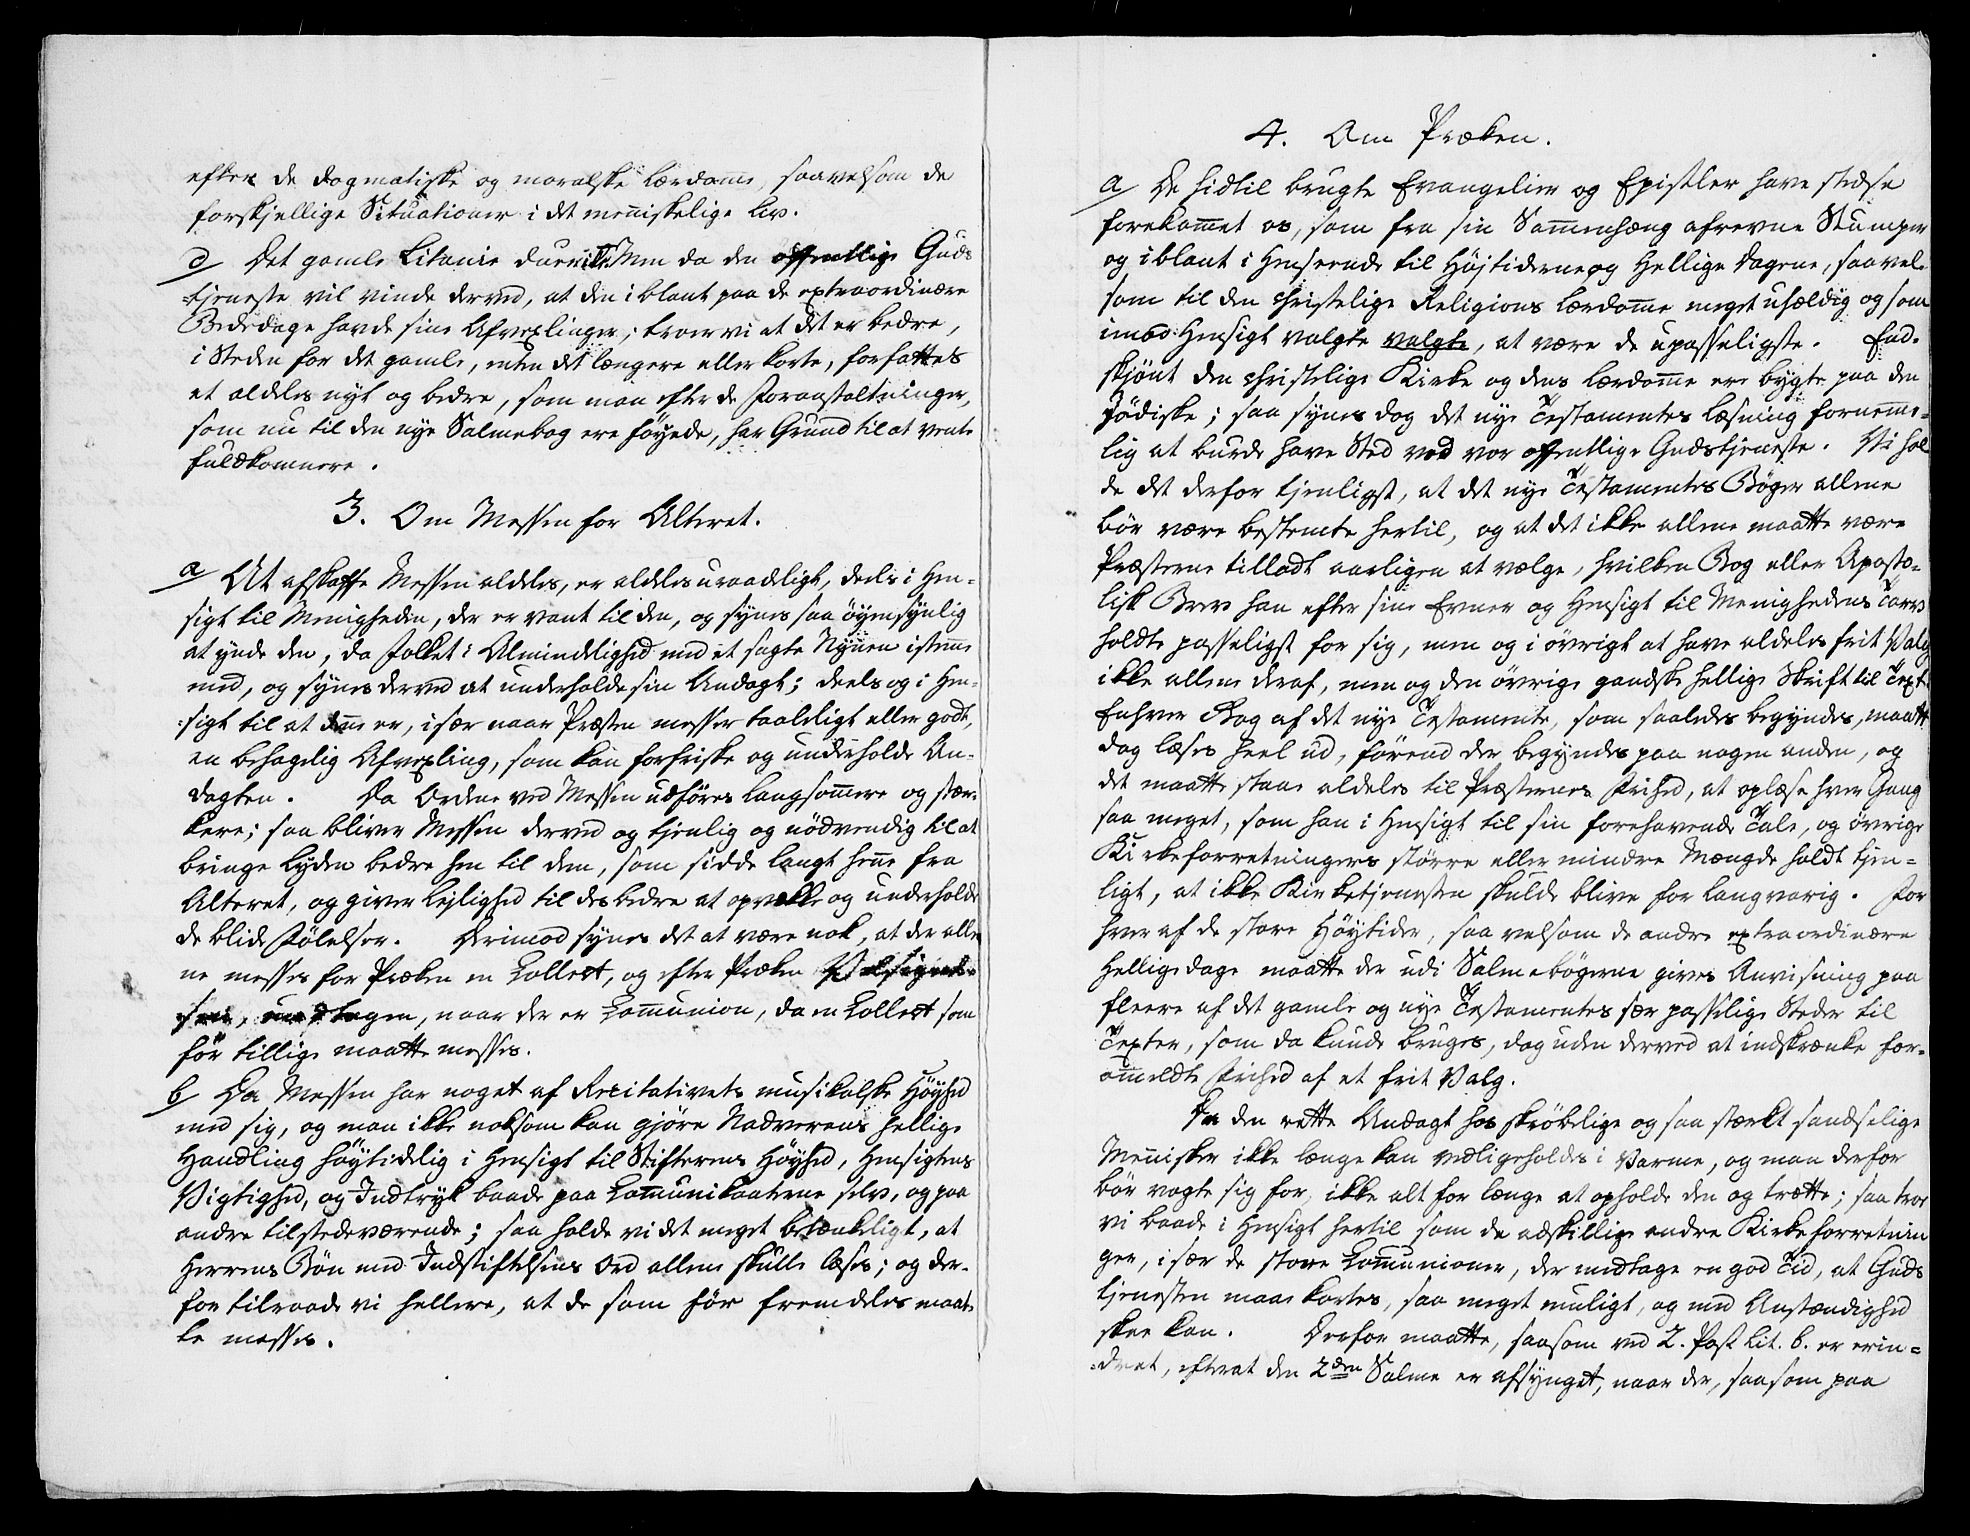 efter de dogmatiske og moralske Lærdomme, saavelsom de
forskjellige Situationer i det menniskelige Liv.
d/ Det gamle Litanie duer ikke. Men da den offentlige Guds
-tjeneste vil vinde derved, at den iblant paa de extraordinære
Bededage havde sine Afvexlinger; troer vi at det er bedre,
i Steden for det gamle, enten det længere eller korte, forfattes
et aldeles nyt og bedre, som man efter de Foranstaltninger,
som nu til den nye Salmebog ere föyede, har Grund til at vente
fuldkomnere.
3. Om Messen for Alteret.
a/ At afskaffe Messen aldeles, er aldeles uraadeligt, deels i Hen-
sigt til Menigheden, der er vant til den, og synes saa öyensynlig
at ynde den, da Folket i Almindelighed med et sagte Nynnen istemme
med, og synes derved at underholde sin Andagt; deels og i Hen-
sigt til at den er, især naar Præsten messer taaleligt eller godt,
en behagelig Afvexling, som kan forfriske og underholde An-
dagten. Da Ordene ved Messen udföres langsommere og stær-
kere; saa bliver Messen derved og tjenlig og nödvendig til at
bringe Lyden bedre hen til dem, som sidde langt henne fra
Alteret, og giver Lejlighed til des bedre at opvække og underholde
de blide Fölelser. Derimod synes det at være nok, at der alle
ne messes for Præken en Collect, og efter Præken Velsignel-
sen, undtagen, naar der er Communion, da en Collect som
för tillige maatte messes.
b/ Da Messen har noget af Recitativets musikalske Höyhed
med sig, og man ikke noksom kan gjöre Nadverens hellige
Handling höytidelig i Hensigt til Stifterens Höyhed, Hensigtens
Vigtighed, og Indtryk baade paa Communikanterne selv, og paa
andre tilstedeværende; saa holde vi det meget betænkeligt, at
Herrens Bön med Indstiftelsens Ord allene skulle læses; og der-
for tilraade vi hellere, at de som för fremdeles maat
te messes.
4. Om Præken.
a/ De hidtil brugte Evangelier og Epistler have stedse
forekommet os, som fra sin Sammenhæng afrevne Stumper
og iblant i Henseende til Höjtiderne og Hellige Dagene, saavel-
som til den christelige Religions Lærdomme meget uheldig og som
imod Hensigt valgte valgte, at være de upasseligste. End-
skjönt den christelige Kirke og dens Lærdomme ere bygte paa den
Jödiske; saa synes dog det nye Testamentes Læsning fornemme-
lig at burde have Sted ved vor offentlige Gudstjeneste. Vi hol
de det derfor tjenligst, at det nye Testamentes Böger allene
bör være bestemte hertil, og at det ikke allene maatte være
Præsterne tilladt aarligen at vælge, hvilken Bog eller Aposto-
lisk Brev han efter sine Evner og Hensigt til Menighedens Tarv
holdte passeligst for sig, men og i övrigt at have aldeles frit Valg
ikke allene deraf, men og den övrige gandske hellige Skrift til Text
Enhver Bog af det nye Testamente, som saaledes begyndes, maatte
dog læses heel ud, förend der begyndes paa nogen anden, og
det maatte staae aldeles til Præsternes Frihed, at oplæse hver Gang
saa meget, som han i Hensigt til sin forehavende Tale, og övrige
Kirkeforretningers större eller mindre Mængde holdt tjen-
ligt, at ikke Kirketjenesten skulde blive for langvarig. For
hver af de store Höytider, saa velsom de andre extraordinære
Helligedage maatte der udi Salmebögerne gives Anvisning paa
fleere af det gamle og nye Testamentes særpasselige Steder til
Texter, som da kunde bruges, dog uden derved at indskrænke for-
ommeldte Frihed af et frit Valg.
Da den rette Andagt hos skröbelige og saa stærkt sandselige
Mennisker ikke længe kan vedligeholdes i Varme, og man derfor
bör vogte sig for, ikke alt for længe at opholde den og trætte; saa troe
vi baade i Hensigt hertil som de adskillige andre Kirkeforretnin
ger, især de store Communioner, der medtage en god Tid, at Guds
tjenesten maae kortes, saa meget muligt, og med Anstændighed
skee kan. Derfor maatte, saasom ved 2. Post Lit. b. er erin=
dret, efterat den 2den Salme er afsynget, naar der, saasom paa